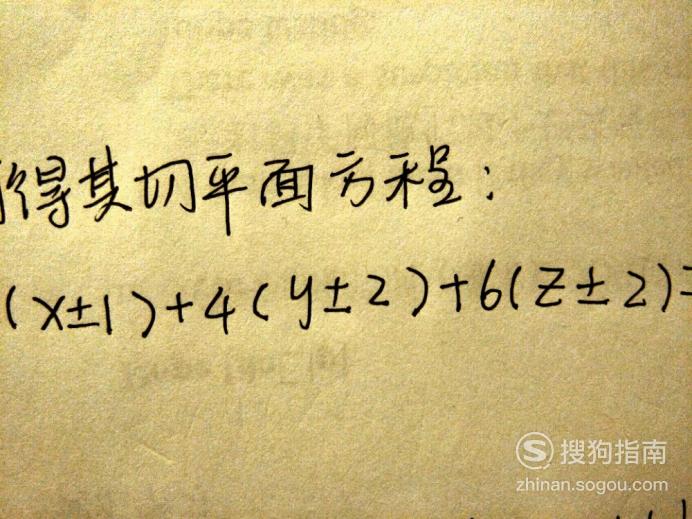 得其切平面方程:
(x±1)+4(y±2)+6(z±2)=
搜狗指南
zhinan.sogou.com